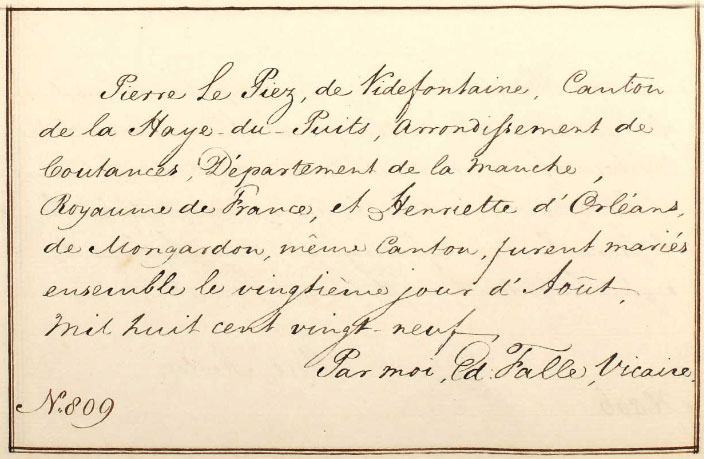 Pierre Le Piez, de Videfontaine, Canton
de la Haye-du-Puits, Arrondissement de
Coutances, Département de la Manche,
Royaume de France, et Henriette d'Orléans,
de Mongardon, même Canton, furent mariés
ensemble le vingtième jour d'Août,
Mil huit cent vingt-neuf,
Par moi, Ed: Falle, Vicaire.
No. 809